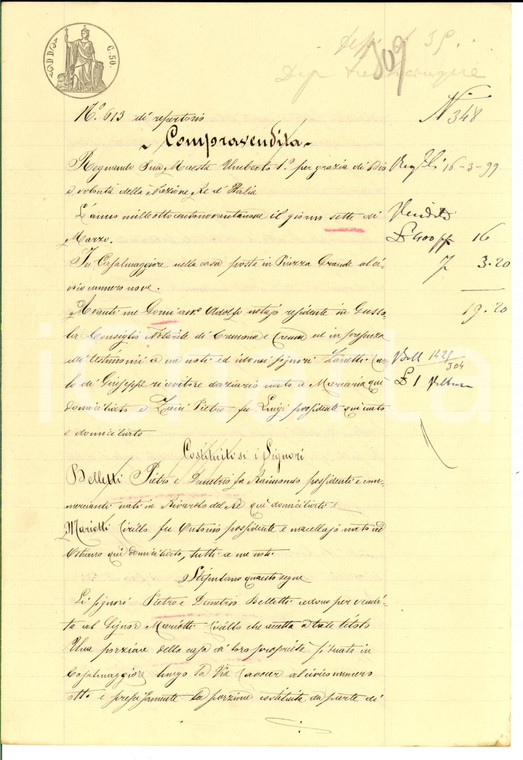 C. 50
309
N° 348
N.° 613 di repertorio
Compravendita
Regnando Sua Maestà Umberto 1.° per grazia di Dio
e volontà della Nazione Re d'Italia
16-3-99
L'anno milleottocentonovantanove il giorno sette di
Marzo.
£ 400 16
In Casalmaggiore nella casa posta in Piazza Grande al ci-
vico numero nove.
3.20
19.20
Avanti me Adolfo notajo residente in Gusso-
la Consiglio Notarile di Cremona e Crema ed in presenza
dei testimonii a me noti ed idonei signori Zanetti Car-
lo di Giuseppe ricevitore daziario nato a Marcaria qui
domiciliato e Pietro fu Luigi possidente qui nato
e domiciliato
Costituitosi i Signori
Belletti Pietro e Demetrio fu Raimondo possidenti e com-
mercianti nati in Rivarolo del Re qui domiciliati
Mariotti Cirillo fu Antonio possidente e macellajo nato ad
Ostiano qui domiciliato, tutti a me noti
Stipulano quanto segue
Li signori Pietro e Demetrio Belletti cedono per vendi-
ta al Signor Mariotti Cirillo che accetta a tale titolo
Una porzione della casa di loro proprietà situata in
Casalmaggiore lungo la Via Cavour al civico numero
otto e precisamente la porzione costituita da parte di